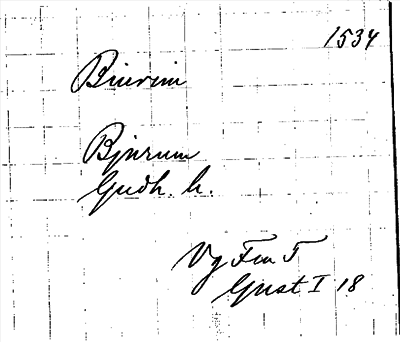 1534
Biurim
Bjurum
Gudh. h.
Vg Fm T
Gust I 18